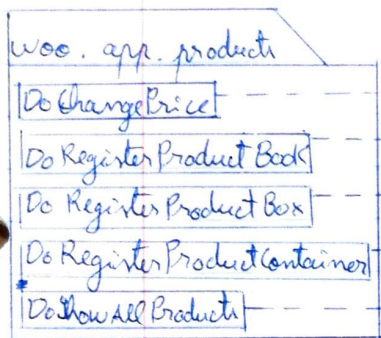 woo. app. products
DoChangePrice
Do Register Product Book
Do Register Product Box
Do Register Product Container
DoShow All Products